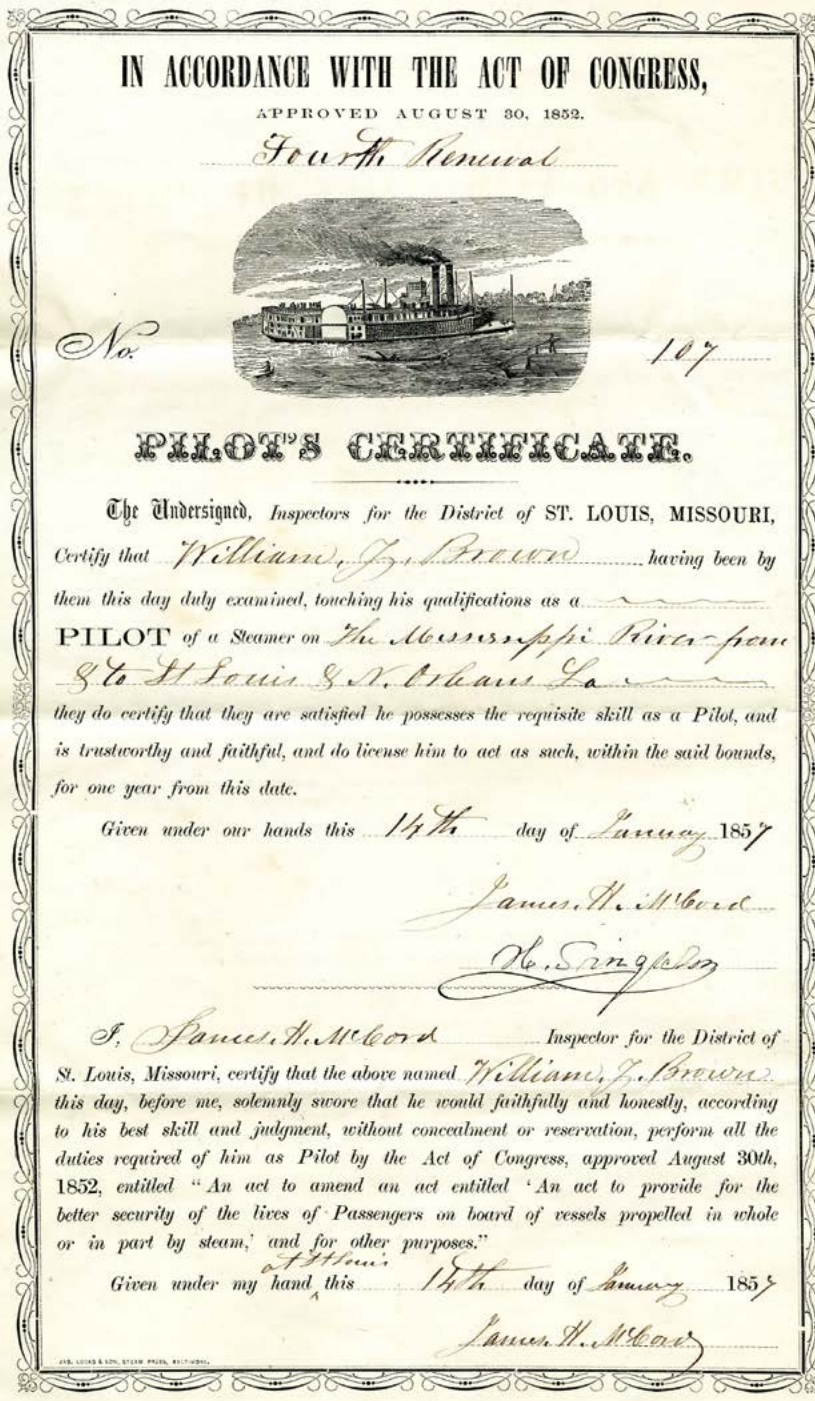 IN ACCORDANCE WITH THE ACT OF CONGRESS,
APPROVED AUGUST 30, 1852.
Fourth Renewal
No. 107
PILOT'S CERTIFICATE.
The Undersigned, Inspectors for the District of ST. LOUIS, MISSOURI,
Certify that William, J, Brown having been by
them this day duly examined, touching his qualifications as a
PILOT of a Steamer on The Mississippi River from
& to St Louis & N. Orleans La
they do certify that they are satisfied he possesses the requisite skill as a Pilot, and
is trustworthy and faithful, and do license him to act as such, within the said bounds,
for one year from this date.
Given under our hands this 14th day of January 1857
James. H. McCord
H. Singleton
I, James. H. McCord Inspector for the District of
St. Louis, Missouri, certify that the above named William, J. Brown
this day, before me, solemnly swore that he would faithfully and honestly, according
to his best skill and judgment, without concealment or reservation, perform all the
duties required of him as Pilot by the Act of Congress, approved August 30th,
1852, entitled "An act to amend an act entitled 'An act to provide for the
better security of the lives of Passengers on board of vessels propelled in whole
or in part by steam,' and for other purposes."
at St Louis
Given under my hand ^ this 14th day of January 1857
James. H. McCord
JAS. LUCAS & SON, STEAM PRESS, BALTIMORE.